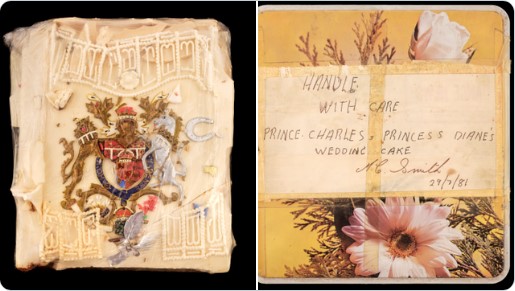 HANDLE
WITH CARE
PRINCE CHARLES & PRINCESS DIANE'S
WEDDING CAKE
29/7/81